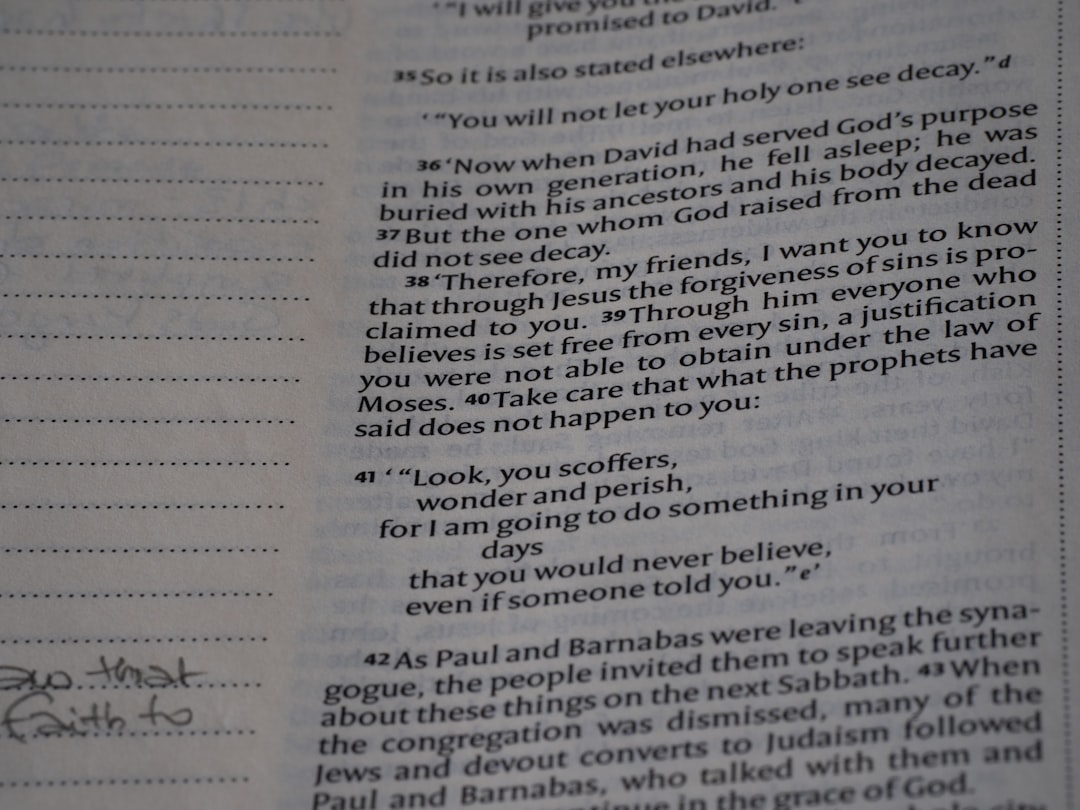 ‘“I will give you the
promised to David.”
35 So it is also stated elsewhere:
‘“You will not let your holy one see decay.”d
36 ‘Now when David had served God’s purpose
in his own generation, he fell asleep; he was
buried with his ancestors and his body decayed.
37 But the one whom God raised from the dead
did not see decay.
38 ‘Therefore, my friends, I want you to know
that through Jesus the forgiveness of sins is pro-
claimed to you. 39 Through him everyone who
believes is set free from every sin, a justification
you were not able to obtain under the law of
Moses. 40 Take care that what the prophets have
said does not happen to you:
41 ‘“Look, you scoffers,
wonder and perish,
for I am going to do something in your
days
that you would never believe,
even if someone told you.”e’
42 As Paul and Barnabas were leaving the syna-
gogue, the people invited them to speak further
about these things on the next Sabbath. 43 When
the congregation was dismissed, many of the
Jews and devout converts to Judaism followed
Paul and Barnabas, who talked with them and
in the grace of God.
that
faith to